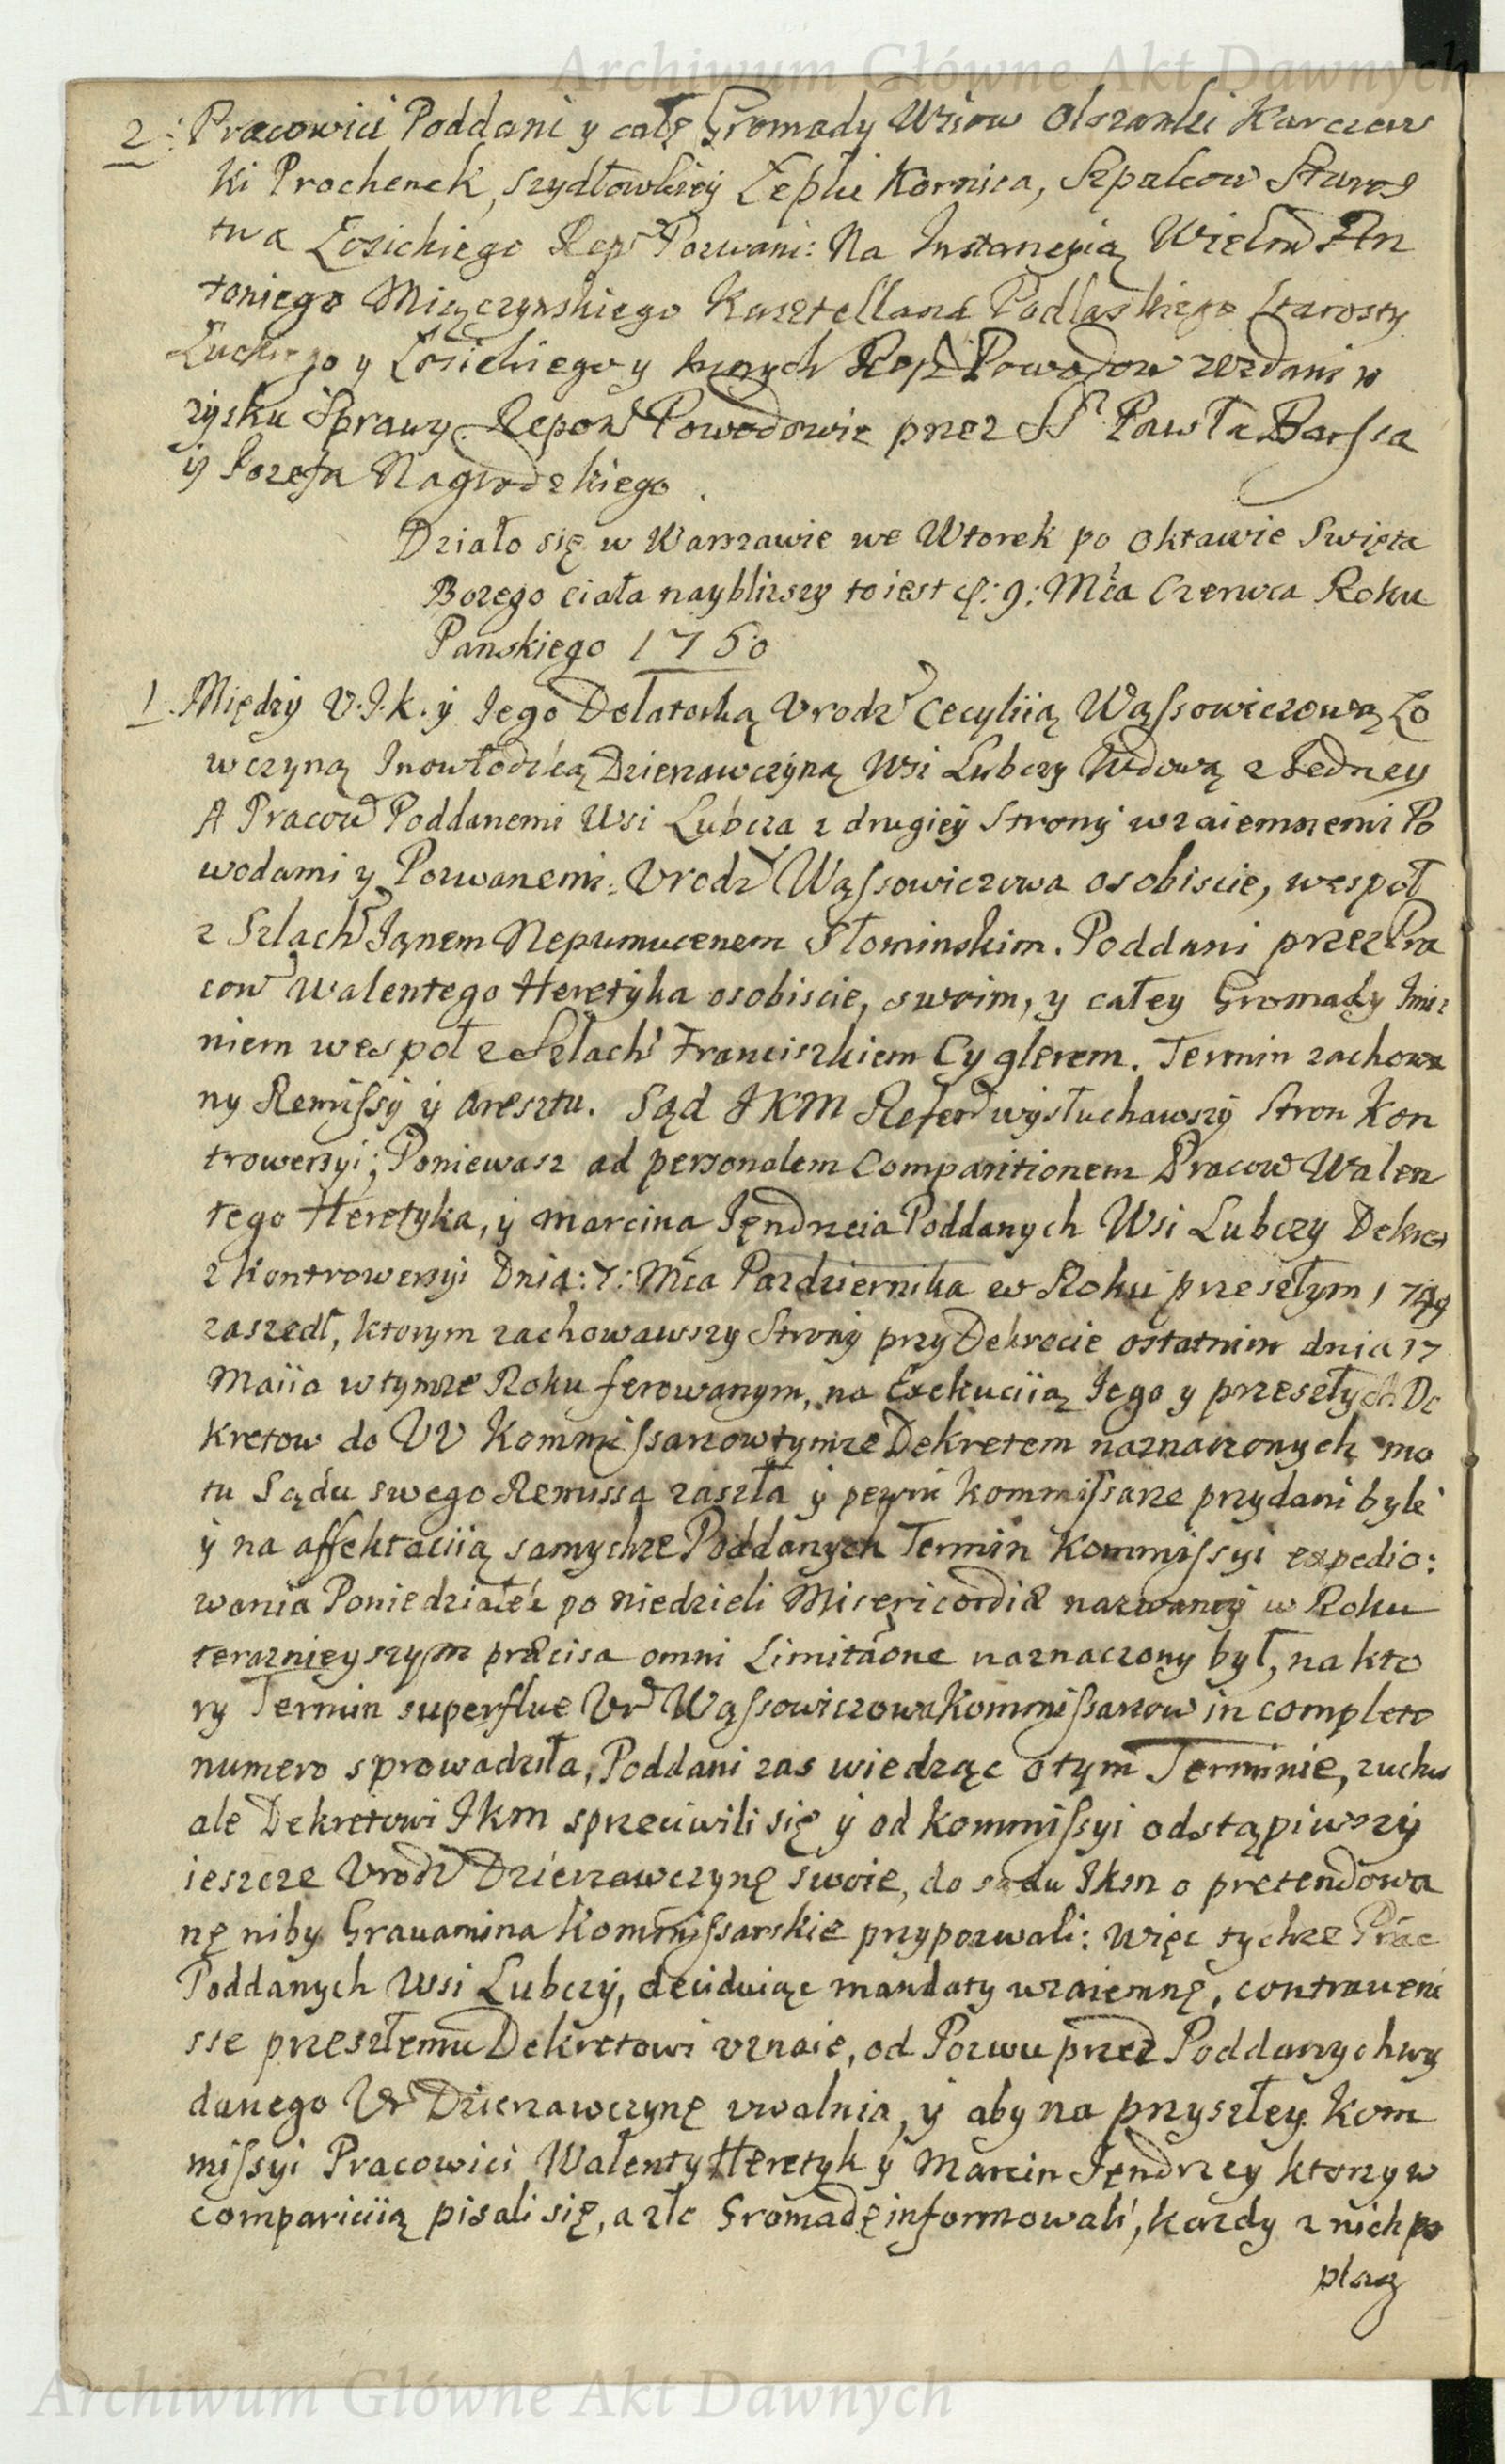 Archiwum Główne Akt Dawnych
2: Pracowici Poddani y całę Gromady Wsiow Olszanki Karczew
ki Prochenek, Szydłowkiey Łepki Kornica, Szpakow Staros
twa Łosickiego Rep Pozwani: Na Instancyią Wielm An
toniego Miączynskiego Kasztellana Podlaskiego Starosty
Łuckiego y Łosickiego y Rep Powodow wzdani w
zysku Sprawy. Repow Powodowie przez Ss Pawła Barssa
y Jozefa Nagrodzkiego.
Działo się w Warszawie we Wtorek po Oktawie Swięta
Bozego ciała nayblizszy to iest d: 9: Mca Czerwca Roku
Panskiego 1750
1. Między V.I.k. y Iego Delatorką Vrodz Cecyliią Wąssowiczową Ło
wczyną Inowłodzką Dzierzawczyną Wsi Lubczy Wdową z Iedney
A Pracow Poddanemi Wsi Lubcza z drugiey Strony wzaiemnemi Po
wodami y Pozwanemi: Vrodz Wąssowiczowa osobiscie, wespoł
z Szlach Janem Nepumucenem Słominskim. Poddani przez Pra
cow Walentego Heretyka osobiscie, swoim, y całey Gromady Imie
niem wespoł z Szlach Franciszkiem Cyglerem. Termin zachowa
ny Remissy y aresztu. Sąd JKM Refer wysłuchawszy Stron Kon
trowersyi; Poniewasz ad personalem Comparitionem Pracow Walen
tego Heretyka, y marcina Jędrzeia Poddanych Wsi Lubczy Dekret
z Kontrowersyi Dnia: 7: Mca Pazdziernika w Roku przeszłym 1749
zaszedł, ktorym zachowawszy Strony przy Dekrecie ostatnim dnia 17
Maiia w tymze Roku ferowanym, na Exekuciią Iego y przeszłych De
kretow do VV Kommissarzow tymze Dekretem naznaczonych mo
tu Sądu swego Remissa zaszła y pewni kommissarze przydani byli
y na affektaciią samychze Poddanych Termin Kommissyi expedio:
wania Poniedziałek po niedzieli Misericordiæ nazwaney w Roku
teraznieyszym præcisa omni Limitaõne naznaczony był, na kto
ry Termin superflue Vr Wąssowiczowa Kommissarzow in completo
numero sprowadziła, Poddani zas wiedząc o tym Terminie, zuchw
ale Dekretowi Jkm sprzeciwili się y od kommissyi odstąpiwszy
ieszcze Vrodz Dzierzawczynę swoie, do sądu Jkm o pretendowa
nę niby Gravamina Kommissarskie przypozwali: więc tychze Prac
Poddanych Wsi Lubczy, deciduiąc mandaty wzaiemnę, contraveni
sse przeszłemu Dekretowi vznaie, od Pozwu przez Poddanych wy
danego Vr Dzierzawczynę vwalnia, y aby na przyszłey Kom
missyi Pracowici Walenty Heretyk y Marcin Jendrzey ktorzy w
compariciią pisali się, a zle Gromadę informowali, kazdy z nich po
plag
Archiwum Główne Akt Dawnych